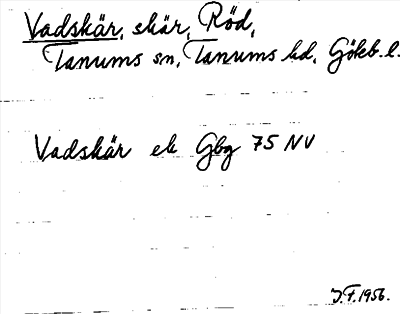 Vadskär, skär, Röd,
Tanums sn, Tanums hd, Gökb. l.
Vadskär ek Gbg 75 NV
J.F. 1956.